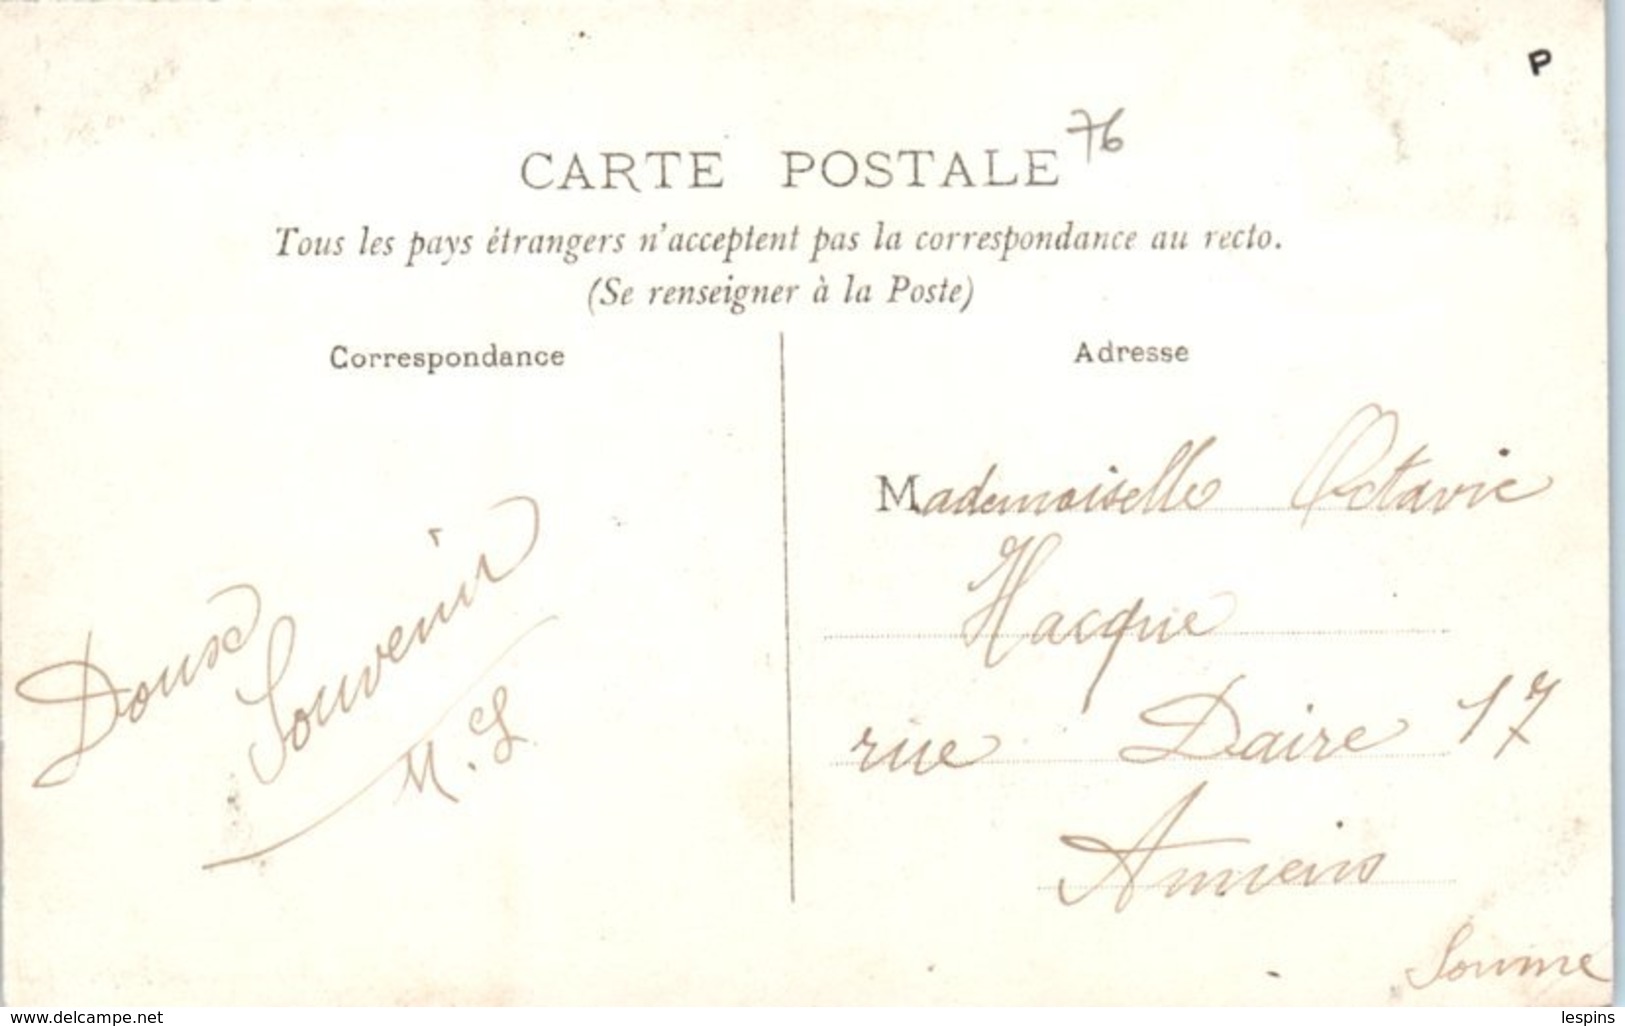 P
76
CARTE POSTALE
Tous les pays étrangers n'acceptent pas la correspondance au recto.
(Se renseigner à la Poste)
Correspondance
Doux
Souvenir
M. L
Adresse
Mademoiselle Octavie
Hacque
rue Daire 17
Amiens
Somme
www.delcampe.net
lespins